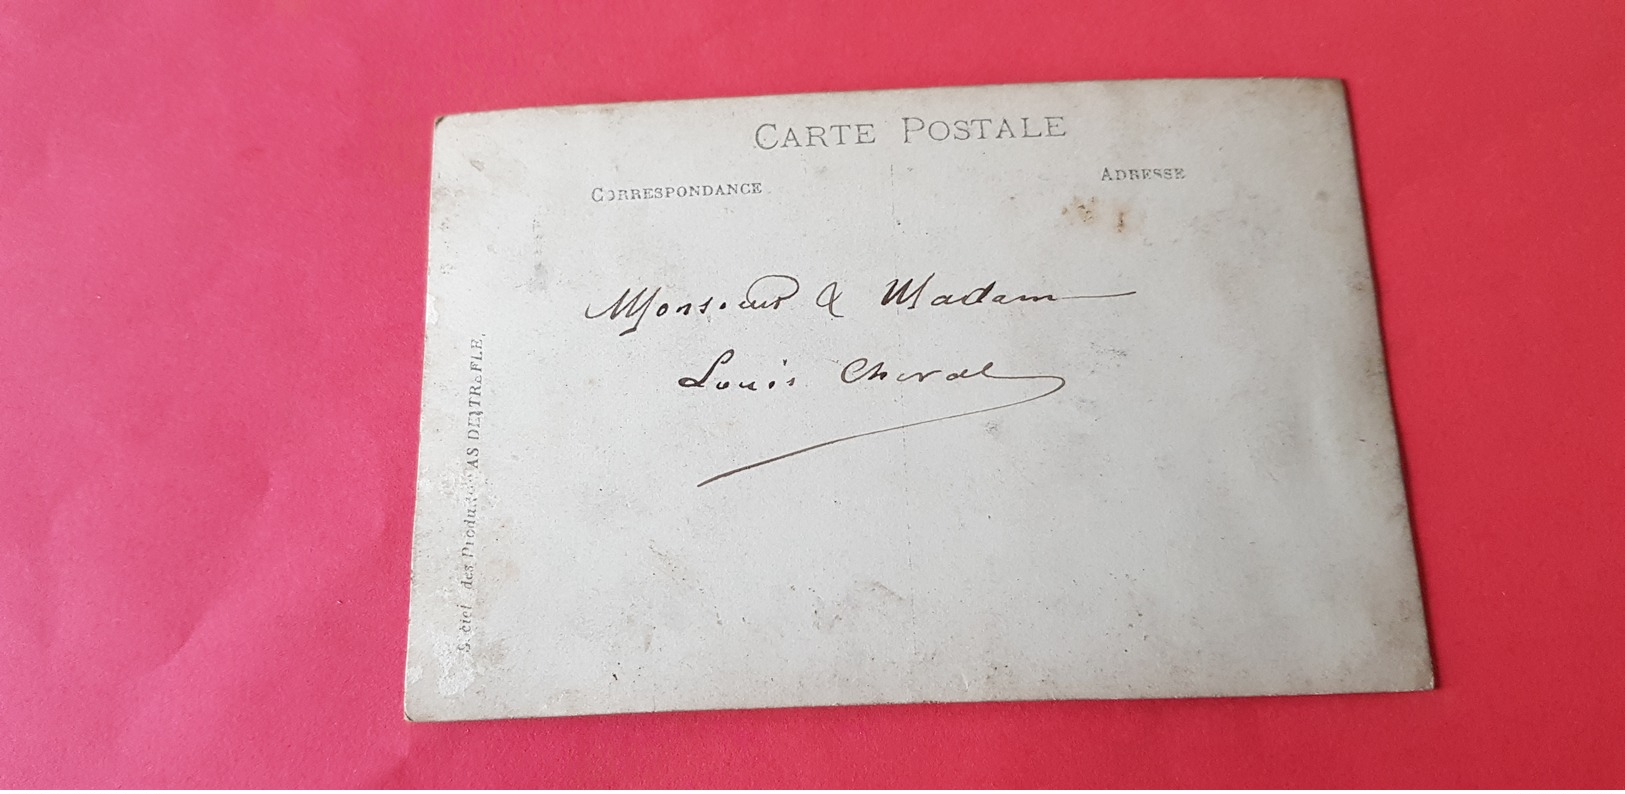 CARTE POSTALE
CORRESPONDANCE
ADRESSE
Monsieur & Madam
Louis Cheval
des Produits AS DE TRÈFLE.